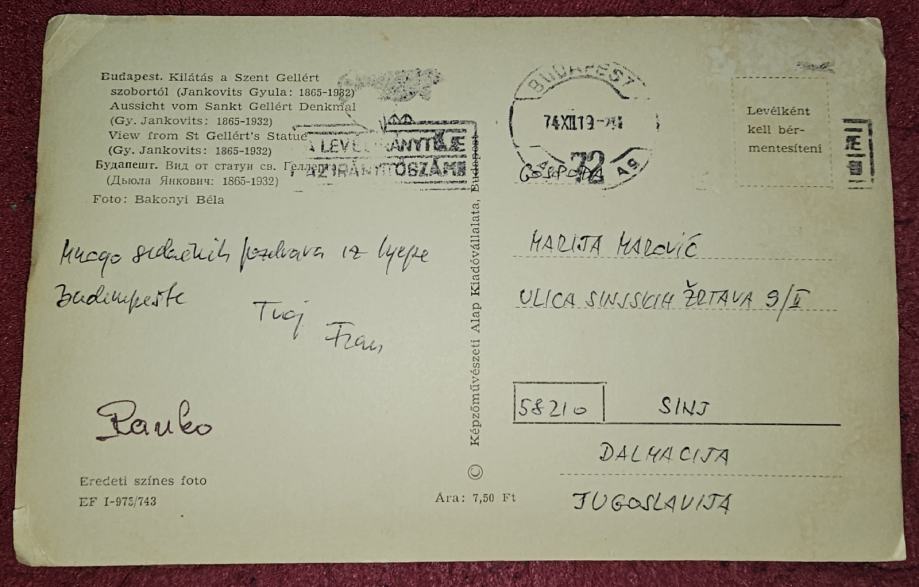 Budapest. Kilátás a Szent Gellért
szobortól (Jankovits Gyula: 1865-1932)
Aussicht vom Sankt Gellért Denkmal
(Gy. Jankovits: 1865-1932)
View from St Gellért's Statue
(Gy. Jankovits: 1865-1932)
Будапешт. Вид от статуи св. Геллерт
(Дьюла Янкович: 1865-1932)
Foto: Bakonyi Béla
A LEVÉL IRÁNYÍTÓJE
AZ IRÁNYÍTÓSZÁM!
BUDAPEST
74 XII 19
72
Levélként
kell bér-
mentesíteni
Mnogo srdačnih pozdrava iz lijepe
Budimpešte
Tvoj
Fran
Ranko
Eredeti színes foto
EF I-975/743
Ára: 7,50 Ft
© Képzőművészeti Alap Kiadóvállalata, Budapest
GOSPOĐA
MARIJA MAROVIĆ
ULICA SINJSKIH ŽRTAVA 9/II
58210 SINJ
DALMACIJA
JUGOSLAVIJA